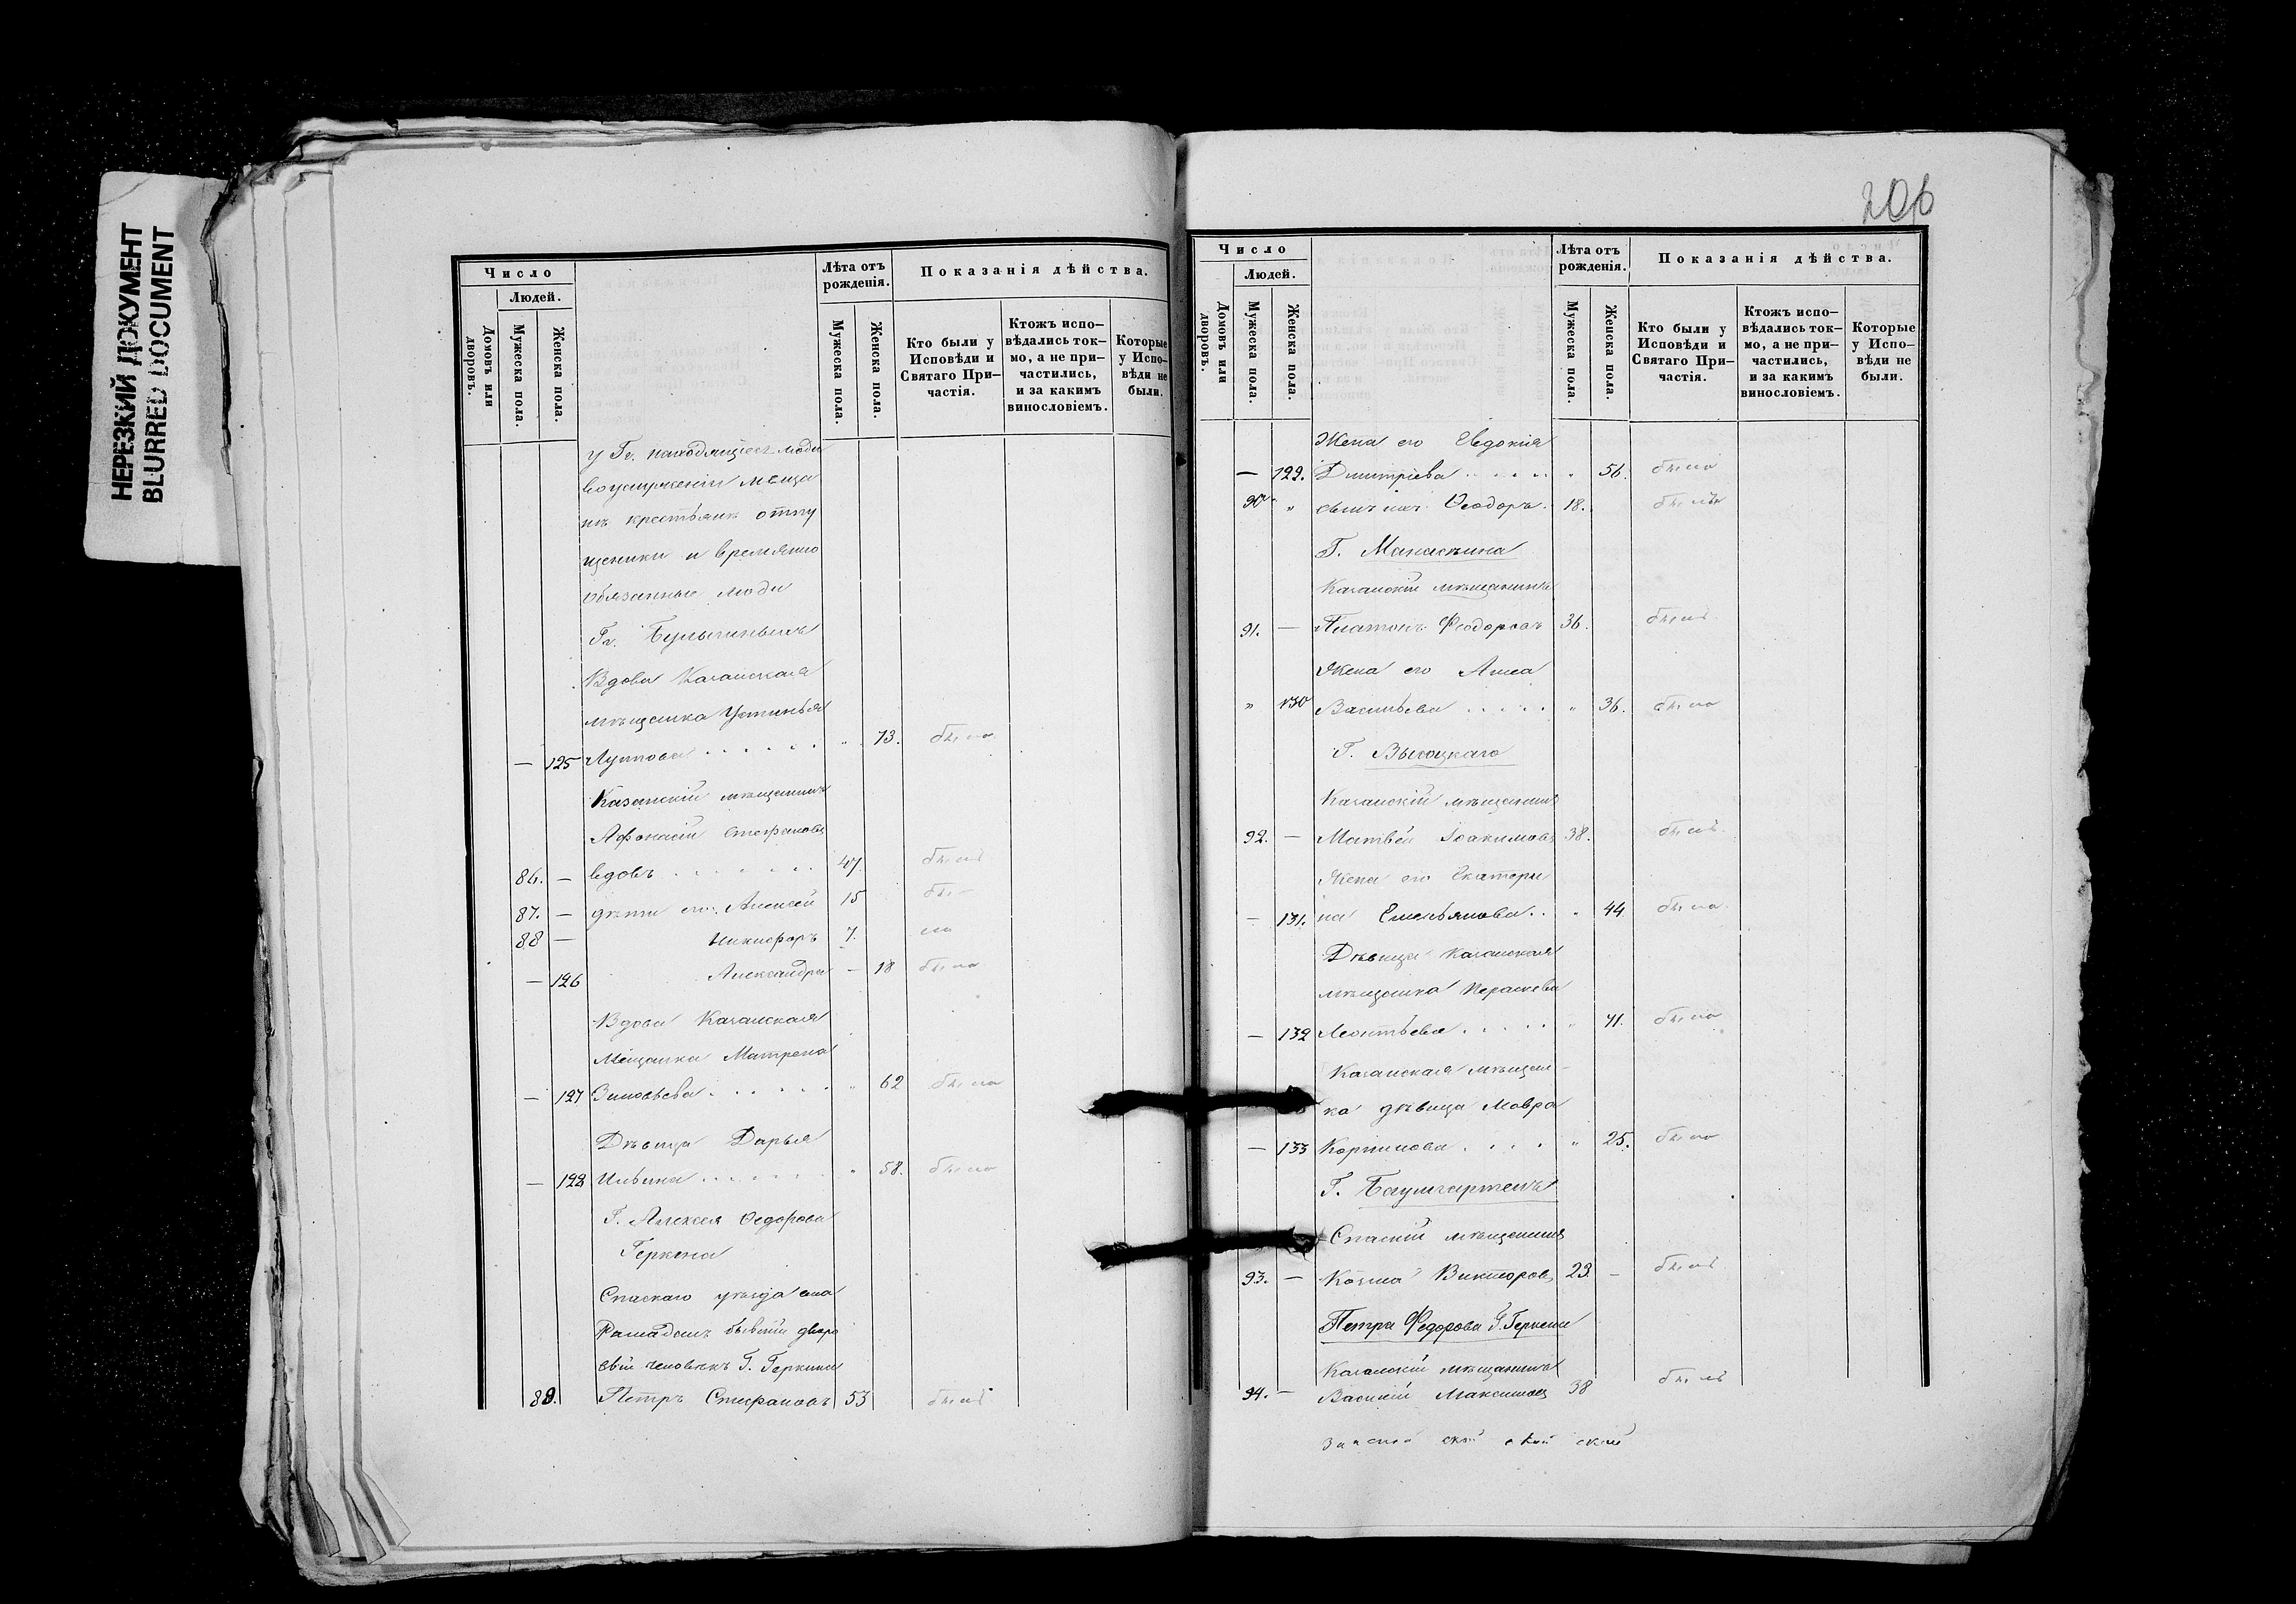 НЕРЕЗКИЙ ДОКУМЕНТ
BLURRED DOCUMENT
Число
Людей.
Домовъ или дворовъ.
Мужеска пола.
Женска пола.
Лѣта отъ рожденія.
Мужеска пола.
Женска пола.
Показанія дѣйства.
Кто были у Исповѣди и Святаго При-частія.
Ктожъ испо-вѣдались ток-мо, а не при-частились, и за какимъ винословіемъ.
Которые у Испо-вѣди не были.
у Гг. находящіеся люди
во услуженіи мѣща
не крестьянъ отпу
щеники и времянно
обязанные люди
Гг. Булыгиныхъ
Вдова Казанская
мѣщанка Устинья
— 125 Луппова " 73. была
Казанскій мѣщанинъ
Афонасій Стефановъ
86. — вдовъ 47. былъ
87. — дѣти его: Алексей 15 бы-
88 — Никифоръ 7.
— 126 Александра — 18 была
Вдова Казанская
Мещанка Матрена
— 127 Зиновьева " 62 была
Дѣвица Дарья
— 128 Ильина " 58. была
Г. Алексея Федорова
Геркена
Спаскаго уѣзда села
бывшій дворо
вый человѣкъ Г. Геркина
89. Петръ Стефановъ 53 былъ
206
Число
Людей.
Домовъ или дворовъ.
Мужеска пола.
Женска пола.
Лѣта отъ рожденія.
Мужеска пола.
Женска пола.
Показанія дѣйства.
Кто были у Исповѣди и Святаго При-частія.
Ктожъ испо-вѣдались ток-мо, а не при-частились, и за какимъ винословіемъ.
Которые у Испо-вѣди не были.
Жена его Евдокія
— 129. Дмитріева " 56. была
90 " сынъ ихъ Феодоръ 18. былъ
Г. Манасеина
Казанскій мѣщанинъ
91. — Платонъ Феодоровъ 36. былъ
Жена его Анна
" 130 Васильева " 36. была
Г. Высоцкаго
Казанскій мѣщанинъ
92. — Матвей Іоакимовъ 38. былъ
Жена его Екатери
— 131. на Емельянова " 44 была
Дѣвица Казанская
мѣщанка Параскева
— 132 Леонтьева " 41. была
Казанская мѣщан-
ка дѣвица Мавра
— 133 Корнилова " 25. была
Г. Баумгартенъ
Спаскій мѣщанинъ
93. — Козма Викторовъ 23. — былъ
Петра Федорова Г. Геркена
Казанскій мѣщанинъ
94. — Василій Максимовъ 38 былъ